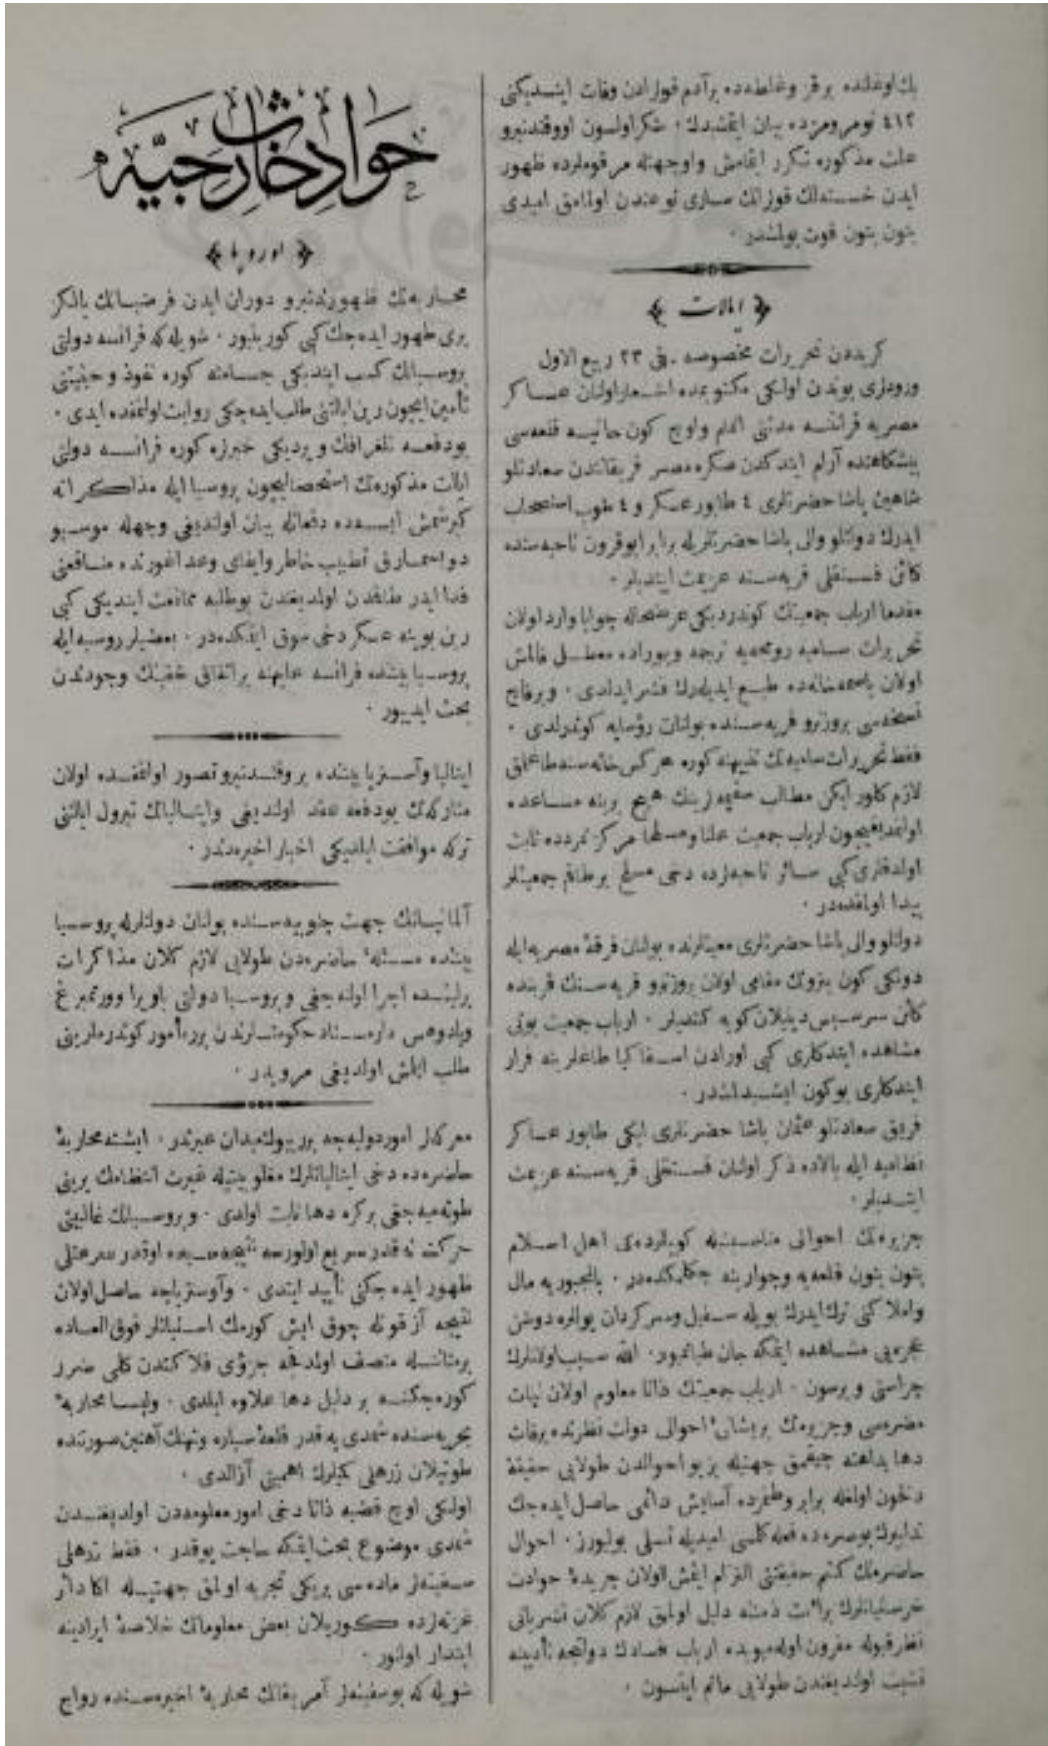 بك اوغلنده بر قز وغلطه‌ده بر آدم قولرادن وفات ايتديكنى
٤١٢ نومرومزده بيان ايتمشدك ، شكر اولسون اووقتدنبرو
علت مذكوره تكرر ايتمامش واوجهتله مرقوملرده ظهور
ايدن خسته‌لك قولرانك سارى نوعندن اولمامق اميدى
بتون بتون قوت بولمشدر .
﴿ ايالات ﴾
كريددن تحريرات مخصوصه . فى ٢٣ ربيع الاول
ورودلرى بوندن اولكى مكتوبمده اشعار اولنان عساكر
مصريه فرانتسه مدتنى اتمام واوچ كون حانيه قلعه‌سى
پيشكاهنده آرام ايتدكدن صكره مصر فريقانندن سعادتلو
شاهين پاشا حضرتلرى ٤ طابور عسكر و ٤ طوب استصحاب
ايدرك دولتلو والى پاشا حضرتلريله برابر ابوقرون ناحيه‌سنده
كائن فستقلى قريه‌سنه عزيمت ايتديلر .
مقدما ارباب جمعيتك كوندرديكى عرضحاله جوابا وارد اولان
تحريرات ساميه رومجه‌يه ترجمه وبوراده معطل قالمش
اولان باصمه‌خانه‌ده طبع ايديله‌رك نشر ايدلدى . وبرقاچ
نسخه‌سى بروزنرو قريه‌سنده بولنان رؤسايه كوندرلدى .
فقط تحريرات ساميه‌نك تنبيهنه كوره هركس خانه‌سنه طاغلمق
لازم كلور ايكن مطالب سقيمه‌لرينك هيچ برينه مساعده
اولنمديغيچون ارباب جمعيت علنا ومسلحا مركز تمردده ثابت
اولدقلرى كبى سائر ناحيه‌لرده دخى مسلح برطاقم جمعيتلر
پيدا اولمقده‌در .
دولتلو والى پاشا حضرتلرى معيتلرنده بولنان فرقهٔ مصريه ايله
دونكى كون متروك مقامى اولان بروزنرو قريه‌سنك قربنده
كائن سرسپس دينيلان كويه كتديلر . ارباب جمعيت بونى
مشاهده ايتدكلرى كبى اورادن اسفاكيا طاغلرينه فرار
ايتدكلرى بوكون ايشيدلمشدر .
فريق سعادتلو عثمان پاشا حضرتلرى ايكى طابور عساكر
نظاميه ايله بالاده ذكر اولنان فستقلى قريه‌سنه عزيمت
ايتديلر .
جزيره‌نك احوالى مناسبتيله كويلرده‌كى اهل اسلام
بتون بتون قلعه‌يه وجوارينه چكلمكده‌در . بالمجبوريه مال
واملاكنى ترك ايدرك بويله سفيل وسركردان يوللره دوشن
عجزه‌يى مشاهده ايتمكه جان طيانميور . الله سبب اولانلرك
جزاسنى ويرسون . ارباب جمعيتك ذاتا معلوم اولان نيات
مضره‌سى وجزيره‌نك پريشانئ احوالى دولت نظرنده برقات
دها بداهته چيقمق جهتيله بز بو احوالدن طولايى حقيقة
دلخون اولمغله برابر وطنمزده آسايش دائمى حاصل ايده‌جك
تدابيرك بوصره‌ده فعله كلمسى اميديله تسلى بولورز . احوال
حاضره‌نك كتم حقيقتنى التزام ايتمش اولان جريدهٔ حوادث
خرستيانلرك برائت ذمتنه دليل اولمق لازم كلان نشرياتى
نظر قبوله مقرون اوله‌ميوبده ارباب فسادك دولتجه تأديبنه
تشبث اولنديغندن طولايى ماتم ايتسون .
حوادث خارجيه
﴿ اوروپا ﴾
محاربه‌نك ظهورندنبرو دوران ايدن فرضياتك يالكز
برى ظهور ايده‌جك كبى كورينيور . شويله كه فرانسه دولتى
پروسيانك كسب ايتديكى جسامته كوره نفوذ وحيثيتنى
تأمين ايچون رين ايالتنى طلب ايده‌جكى روايت اولنمقده ايدى .
بودفعه تلغرافك ويرديكى خبرلره كوره فرانسه دولتى
ايالت مذكوره‌نك استحصاليچون پروسيا ايله مذاكراته
كيرشمش ايسه‌ده دفعاتله بيان اولنديغى وجهله موسيو
دو بسمارق تطييب خاطر وايفاى وعد اغورنده منافعنى
فدا ايدر طاقمدن اولمديغندن بوطلبه ممانعت ايتديكى كبى
رين بوينه عسكر دخى سوق ايتمكده‌در . بعضيلر روسيه ايله
پروسيا بيننده فرانسه عليهنه بر اتفاق خفينك وجودندن
بحث ايديور .
ايتاليا وآوستريا بيننده بر وقتدنبرو تصور اولنمقده اولان
متاركه‌نك بودفعه عقد اولنديغى وايتاليانك تيرول ايالتنى
تركه موافقت ايلديكى اخبار اخيره‌دندر .
آلمانيانك جهت جنوبيه‌سنده بولنان دولتلرله پروسيا
بيننده مسئلهٔ حاضره‌دن طولايى لازم كلان مذاكرات
برلينده اجرا اولنه‌جغى وپروسيا دولتى باويرا وورتمبرغ
وبادوهس دارمستاد حكومتلرندن برر مأمور كوندرملرينى
طلب ايلمش اولديغى مرويدر .
معركه‌لر امور دوليه‌جه برر بيوك ميدان عبرتدر . ايشته محاربهٔ
حاضره‌ده دخى ايتاليانلرك مغلوبيتيله غيرت انتظامك يرينى
طوته‌ميه‌جغى بركره دها ثابت اولدى . وپروسيانك غالبيتى
حركت نه قدر سريع اولورسه نتيجه‌سى‌ده اوقدر سرعتلى
ظهور ايده‌جكنى تأييد ايتدى . وآوسترياجه حاصل اولان
نتيجه آز قوتله چوق ايش كورمك استيانلر فوق العاده
برمتانتله متصف اولدقجه جزؤى فلاكتدن كلى ضرر
كوره‌جكنه بر دليل دها علاوه ايلدى . وليسا محاربهٔ
بحريه‌سنده شمدى‌يه قدر قلعهٔ سياره ونهنك آهنين صورتنده
طوتيلان زرهلى كميلرك اهميتى آزالدى .
اولكى اوچ قضيه ذاتا دخى امور معلومه‌دن اولديغندن
شمدى موضوع بحث ايتمكه حاجت يوقدر . فقط زرهلى
سفينه‌لر ماده‌سى يرنكى تجربه اولمق جهتيله اكا دائر
غزته‌لرده كوريلان بعض معلوماتك خلاصهٔ ايرادينه
ابتدار اولنور .
شويله كه بوسفينه‌لر آمريقانك محاربهٔ اخيره‌سنده رواج